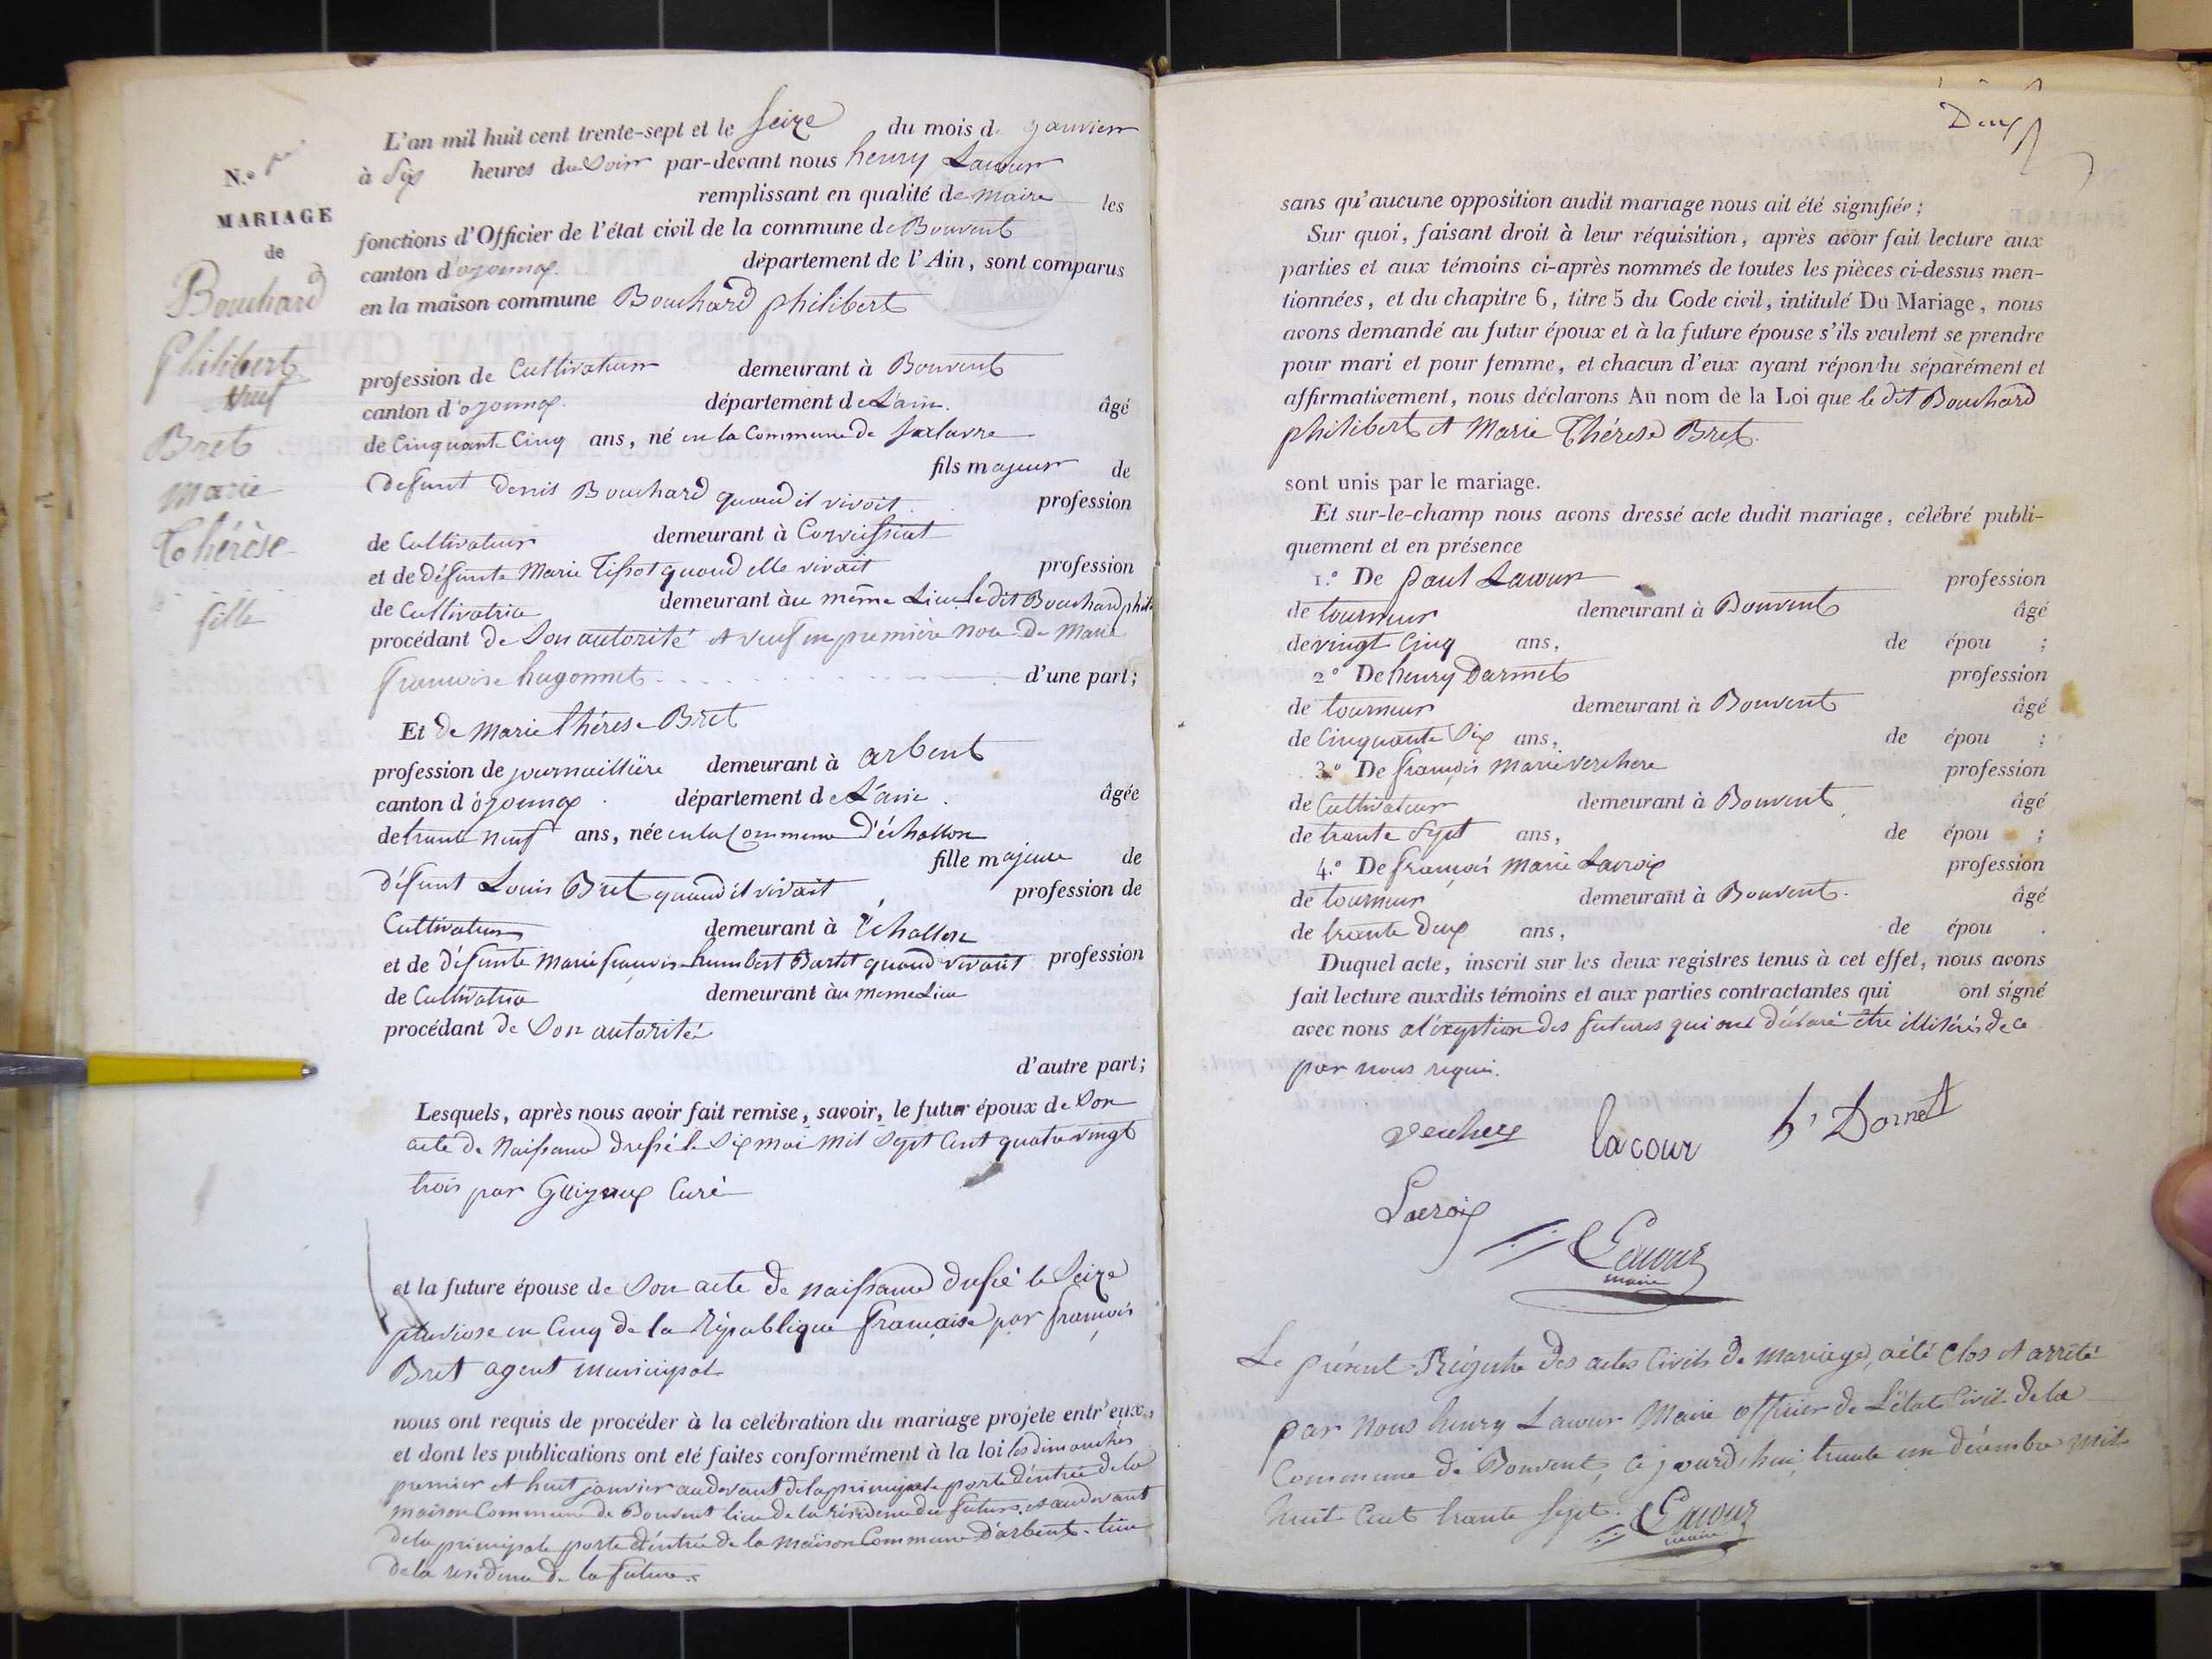 N.º 1er
MARIAGE
de
Bouchard
Philibert
veuf
Bret
marie
Thérèse
fille
L'an mil huit cent trente-sept et le Seize du mois de janvier
à Six heures du Soir par-devant nous henry Lacour
remplissant en qualité de maire les
fonctions d'Officier de l'état civil de la commune de Bouvent
canton d'oyonnax département de l'Ain, sont comparus
en la maison commune Bouchard philibert
profession de Cultivateur demeurant à Bouvent
canton d'oyonnax. département de L'ain. âgé
de Cinquante Cinq ans, né en la Commune de
fils majeur de
Defunt denis Bouchard quand il vivoit profession
de Cultivateur demeurant à Corveissiat
et de défunte Marie Tissot quand elle vivait profession
de Cultivatrice demeurant àu même Lieu, le dit Bouchard phili
procédant de Son autorité et veuf en première noce de Marie
francoise hugonnet d'une part;
Et de marie thérese Bret
profession de journaillière demeurant à arbent
canton d'oyonnax. département de L'ain. âgée
de trente neuf ans, née en la Commune D'échallon
fille majeure de
défunt Louis Bret quand il vivait profession de
Cultivateur demeurant à Echallon
et de défunte Marie francoise humbert Bartet quand vivait profession
de Cultivatrice demeurant àu meme Lieu
procédant de Son autorité
d'autre part;
Lesquels, après nous avoir fait remise, savoir, le futur époux de Son
acte de Naissance dressé le Six mai mil Sept Cent quatre vingt
trois par Curé
et la future épouse de Son acte de naissance dressé le Seize
pluviose en Cinq de la République francaise par françois
Bret agent municipal
nous ont requis de procéder à la celébration du mariage projeté entr'eux,
et dont les publications ont eté faites conformément à la loi les dimanches
premier et huit janvier au devant de la principale porte d'entrée de la
maison Commune de Bouvent lieu de la résidence du futur, et au devant
de la principale porte d'entrée de la maison Commune D'arbent. lieu
de la residence de la future.
Deux
sans qu'aucune opposition audit mariage nous ait été signifiée;
Sur quoi, faisant droit à leur réquisition, après avoir fait lecture aux
parties et aux témoins ci-après nommés de toutes les pièces ci-dessus men-
tionnées, et du chapitre 6, titre 5 du Code civil, intitulé Du Mariage, nous
avons demandé au futur époux et à la future épouse s'ils veulent se prendre
pour mari et pour femme, et chacun d'eux ayant répondu séparément et
affirmativement, nous déclarons Au nom de la Loi que le dit Bouchard
philibert et Marie Thérese Bret.
sont unis par le mariage.
Et sur-le-champ nous avons dressé acte dudit mariage, célébré publi-
quement et en présence
1.º De paul Lacour profession
de tourneur demeurant à Bouvent âgé
de vingt Cinq ans, de épou ;
2º De henry Darmet profession
de tourneur demeurant à Bouvent âgé
de Cinquante Six ans, de épou ;
3.º De françois marie verchere profession
de Cultivateur demeurant à Bouvent âgé
de trante Sept ans, de épou ;
4.º De françois marie Lacroix profession
de tourneur demeurant à Bouvent. âgé
de trante Deux ans, de épou .
Duquel acte, inscrit sur les deux registres tenus à cet effet, nous avons
fait lecture auxdits témoins et aux parties contractantes qui ont signé
avec nous a l'exception des futures qui ont déclaré être illitérés de ce
par nous requis.
lacour
h' Darnet
Lacroix
Lacour
maire
Le présent Régistre des actes Civils de mariages, a été Clos et arrêté
par nous henry Lacour Maire officier de L'état Civil de la
Commune de Bouvent, Ce jourd'hui, trente un décembre mil
huit Cent trante Sept. Lacour
maire